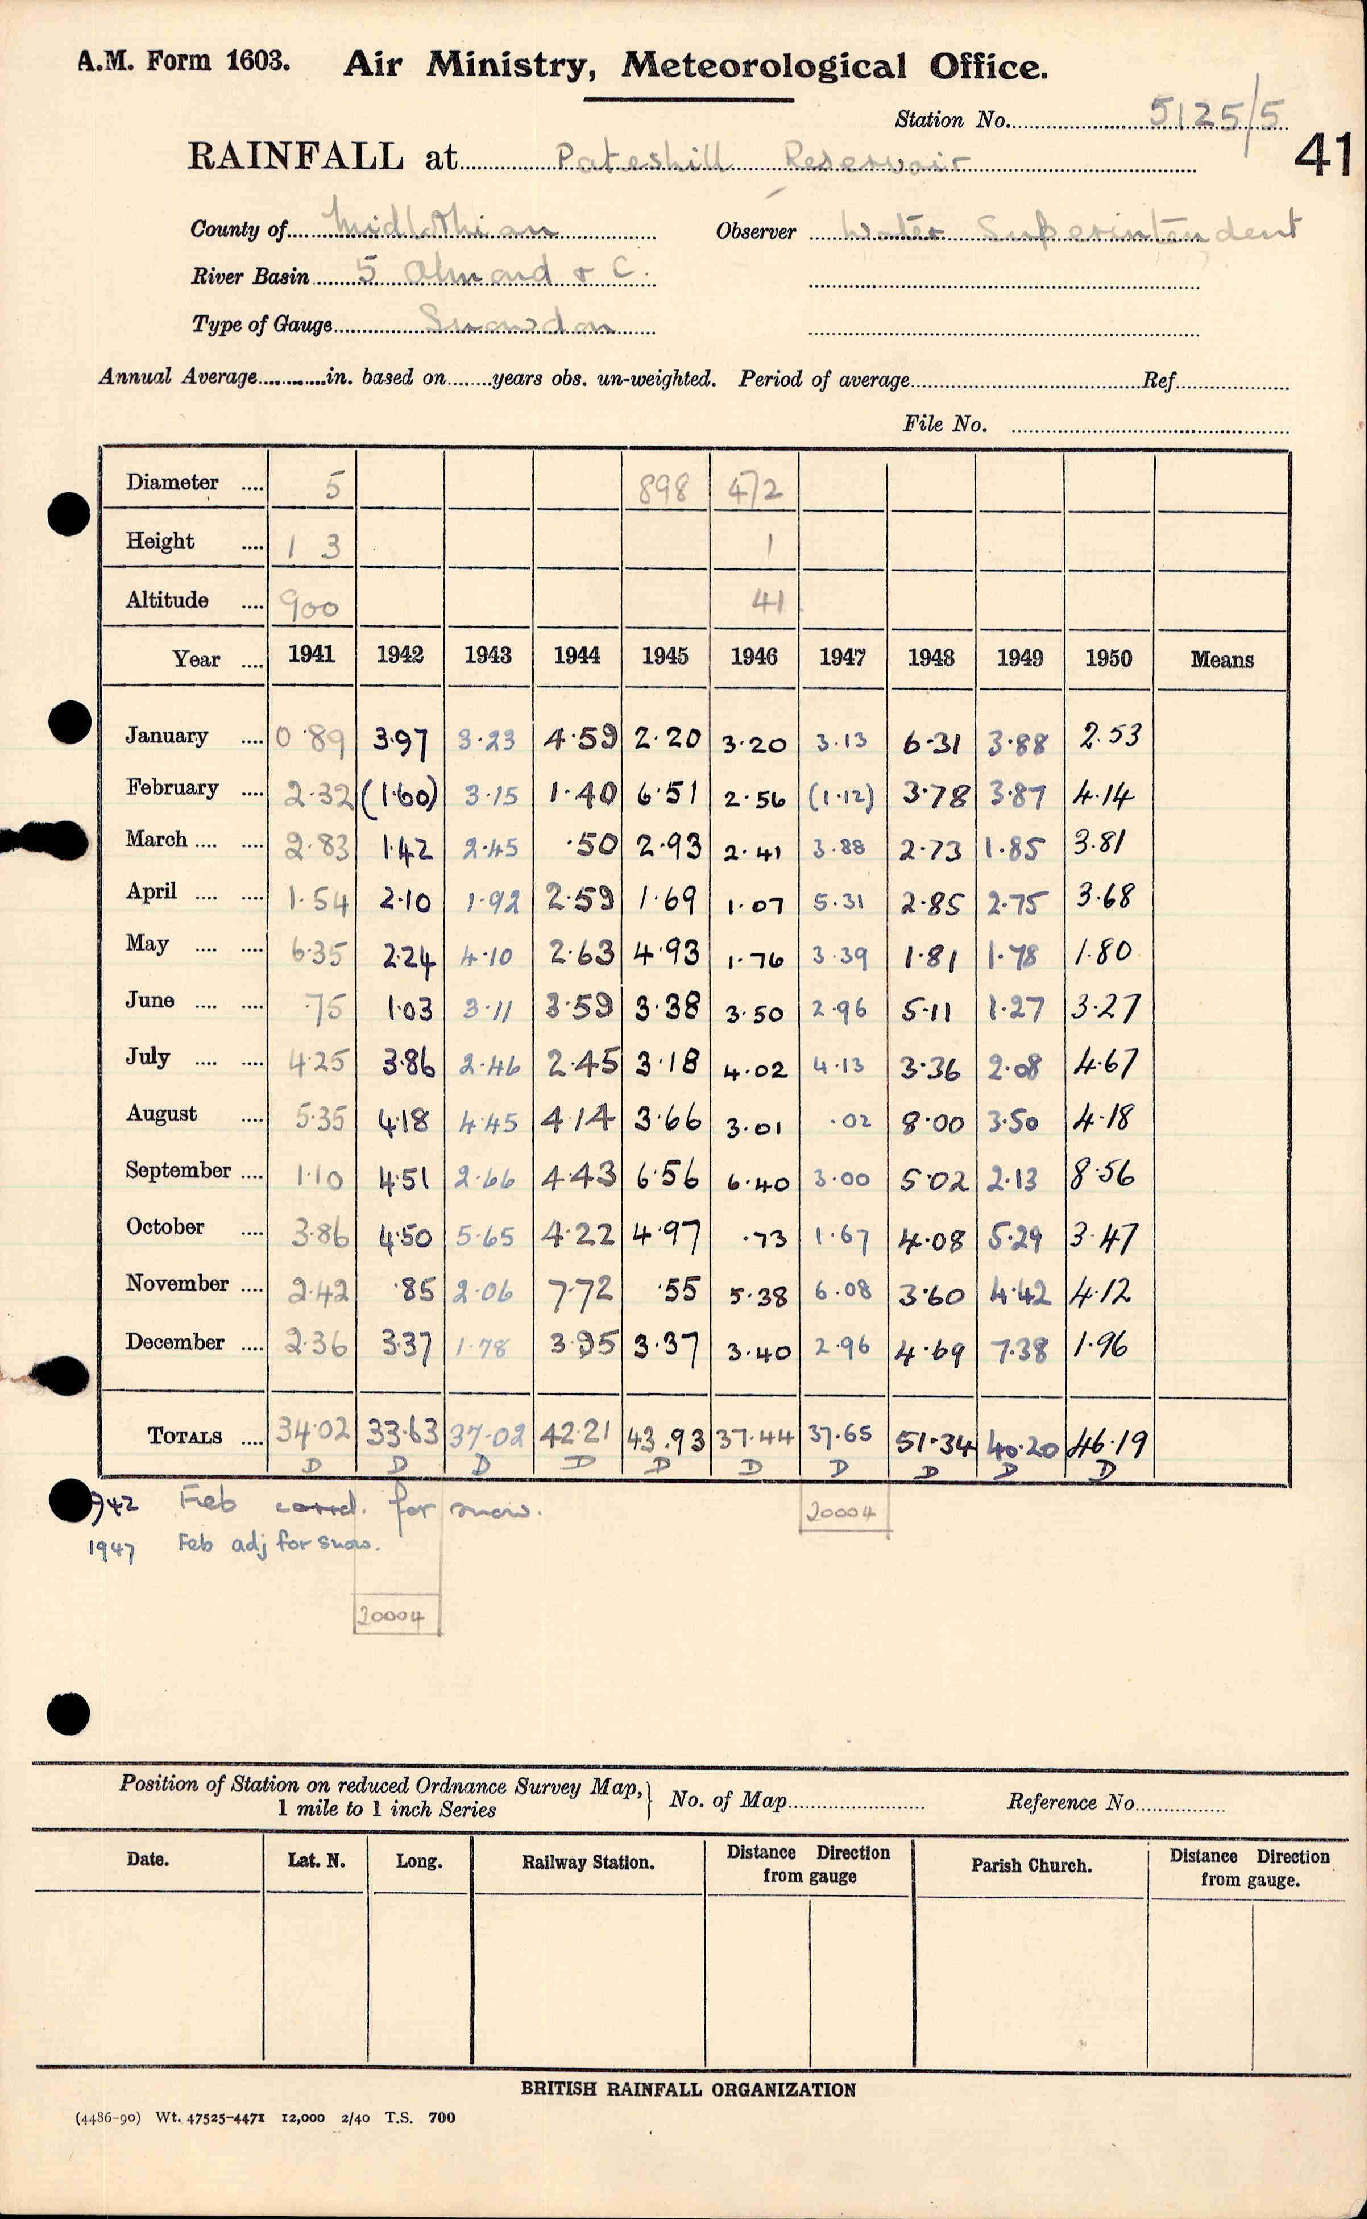 A.M. Form 1603. Air Ministry, Meteorological Office.
Station No. 5125/5
41
RAINFALL at Pateshill Reservoir
County of Midlothian Observer Water Superintendent
River Basin 5 Almond & C.
Type of Gauge Snowdon
Annual Average in. based on years obs. un-weighted. Period of average Ref
File No.
Diameter 5 898 472
Height 1 3 1
Altitude 900 41
Year 1941 1942 1943 1944 1945 1946 1947 1948 1949 1950 Means
January 0.89 3.97 3.23 4.59 2.20 3.20 3.13 6.31 3.88 2.53
February 2.32 (1.60) 3.15 1.40 6.51 2.56 (1.12) 3.78 3.87 4.14
March 2.83 1.42 2.45 .50 2.93 2.41 3.88 2.73 1.85 3.81
April 1.54 2.10 1.92 2.59 1.69 1.07 5.31 2.85 2.75 3.68
May 6.35 2.24 4.10 2.63 4.93 1.76 3.39 1.81 1.78 1.80
June .75 1.03 3.11 3.59 3.38 3.50 2.96 5.11 1.27 3.27
July 4.25 3.86 2.46 2.45 3.18 4.02 4.13 3.36 2.08 4.67
August 5.35 4.18 4.45 4.14 3.66 3.01 .02 8.00 3.50 4.18
September 1.10 4.51 2.66 4.43 6.56 6.40 3.00 5.02 2.13 8.56
October 3.86 4.50 5.65 4.22 4.97 .73 1.67 4.08 5.29 3.47
November 2.42 .85 2.06 7.72 .55 5.38 6.08 3.60 4.42 4.12
December 2.36 3.37 1.78 3.95 3.37 3.40 2.96 4.69 7.38 1.96
TOTALS 34.02 33.63 37.02 42.21 43.93 37.44 37.65 51.34 40.20 46.19
D D D D D D D D D D
1942 Feb corrd. for snow.
20004
1947 Feb adj for snow.
20004
Position of Station on reduced Ordnance Survey Map,
1 mile to 1 inch Series
No. of Map Reference No.
Date. Lat. N. Long. Railway Station. Distance from gauge Direction Parish Church. Distance Direction from gauge.
BRITISH RAINFALL ORGANIZATION
(4486-90) Wt. 47525-4471 12,000 2/40 T.S. 700